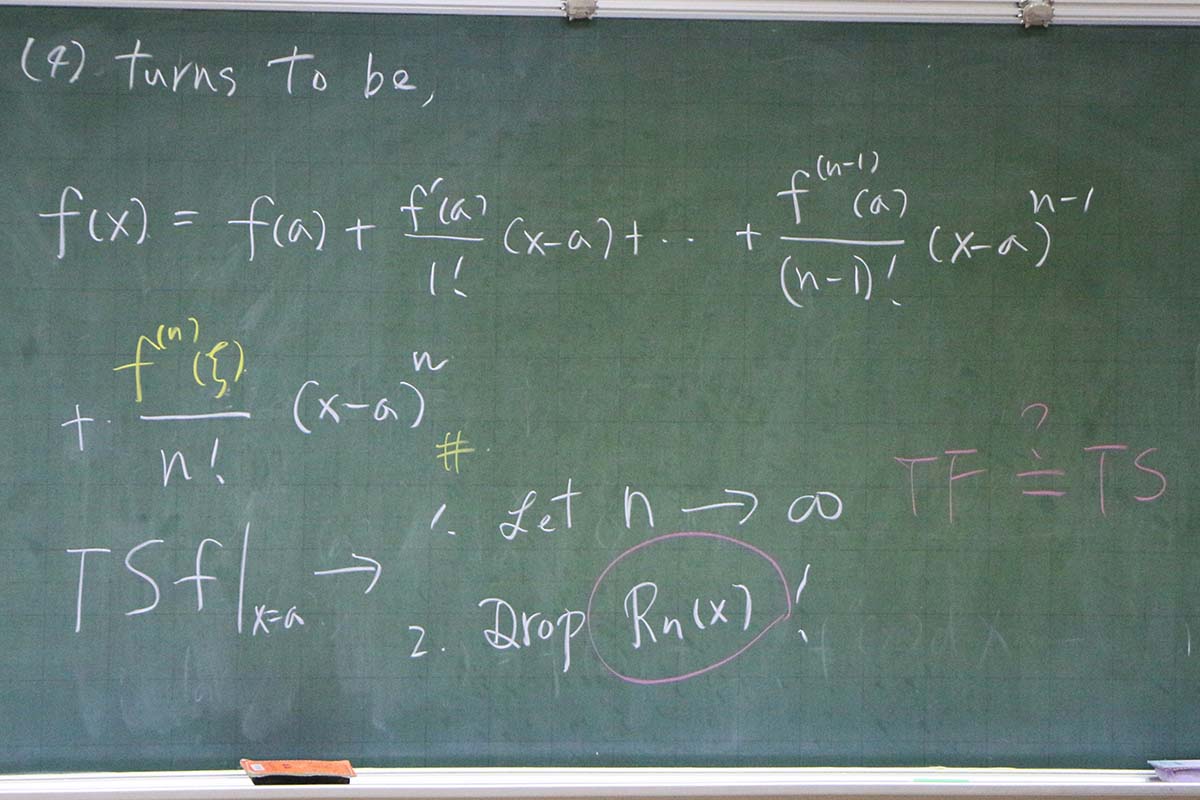 (4) turns to be,
f(x) = f(a) + f'(a)/1! (x-a) + ⋯ + f^(n-1)(a)/(n-1)! (x-a)^n-1
+ f^(n)(ξ)/n! (x-a)^n #
TF ≟ TS
TSf|x=a → 1. Let n → ∞
2. Drop Rn(x) !